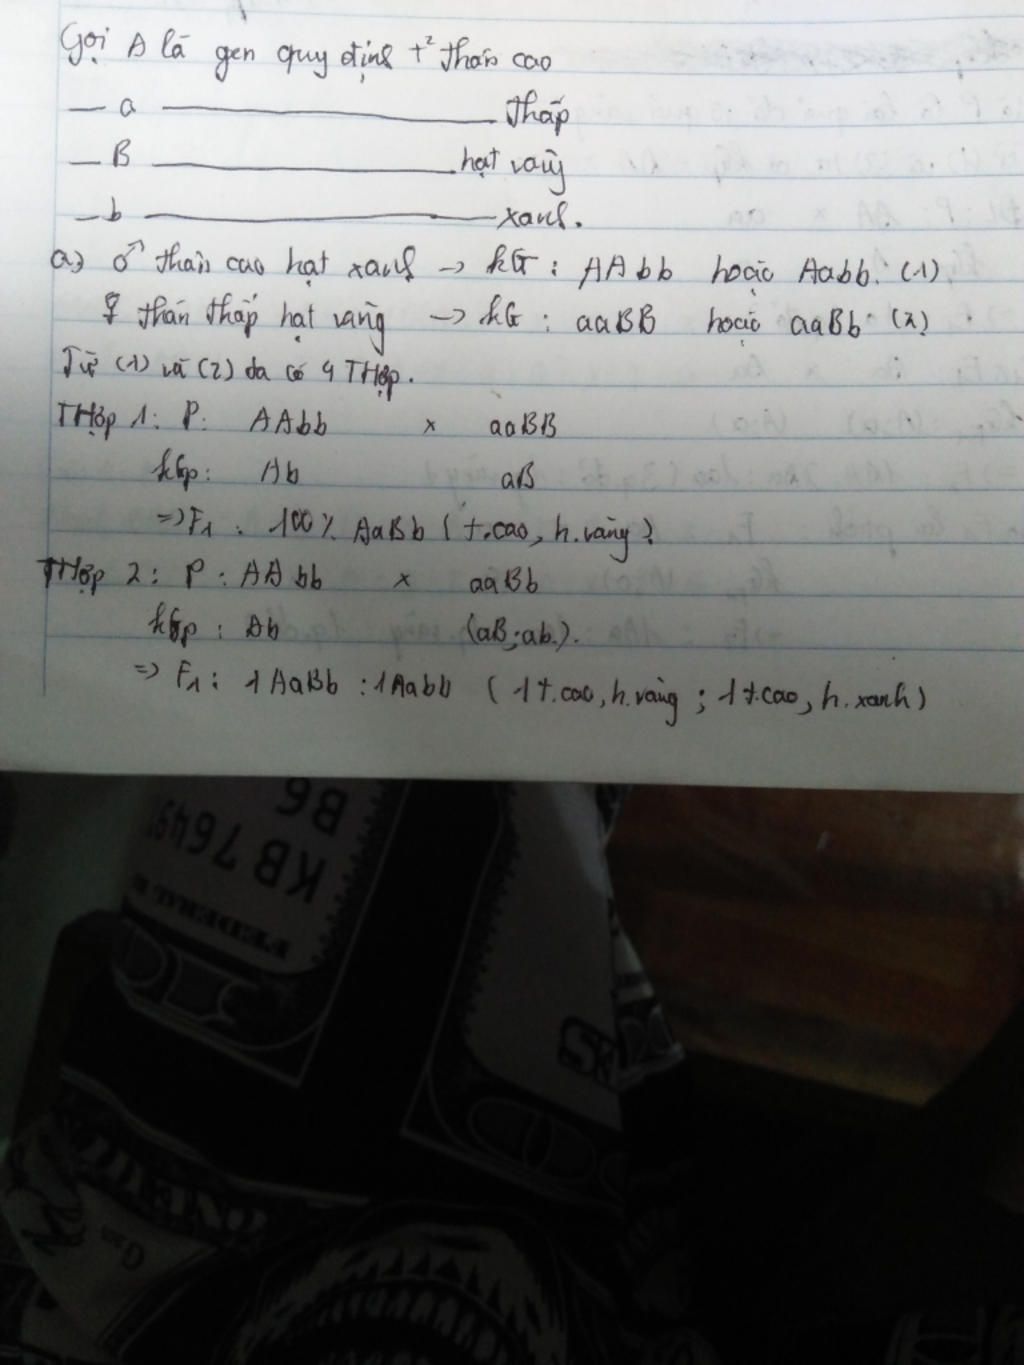 Gọi A là gen quy định t² thân cao
— a ——— thấp
— B ——— hạt vàng
— b ——— xanh.
a) ♂ thân cao hạt xanh → kG : AAbb hoặc Aabb. (1)
♀ thân thấp hạt vàng → kG : aaBB hoặc aaBb (2)
Từ (1) và (2) ta có 4 THợp.
THợp 1: P: AAbb x aaBB
kGp: Ab aB
=> F1 : 100% AaBb (t.cao, h.vàng)
THợp 2: P : AAbb x aaBb
kGp : Ab (aB; ab.).
=> F1 : 1AaBb : 1Aabb (1t.cao, h.vàng ; 1t.cao, h.xanh)
B6
KB 7649
FEDERAL